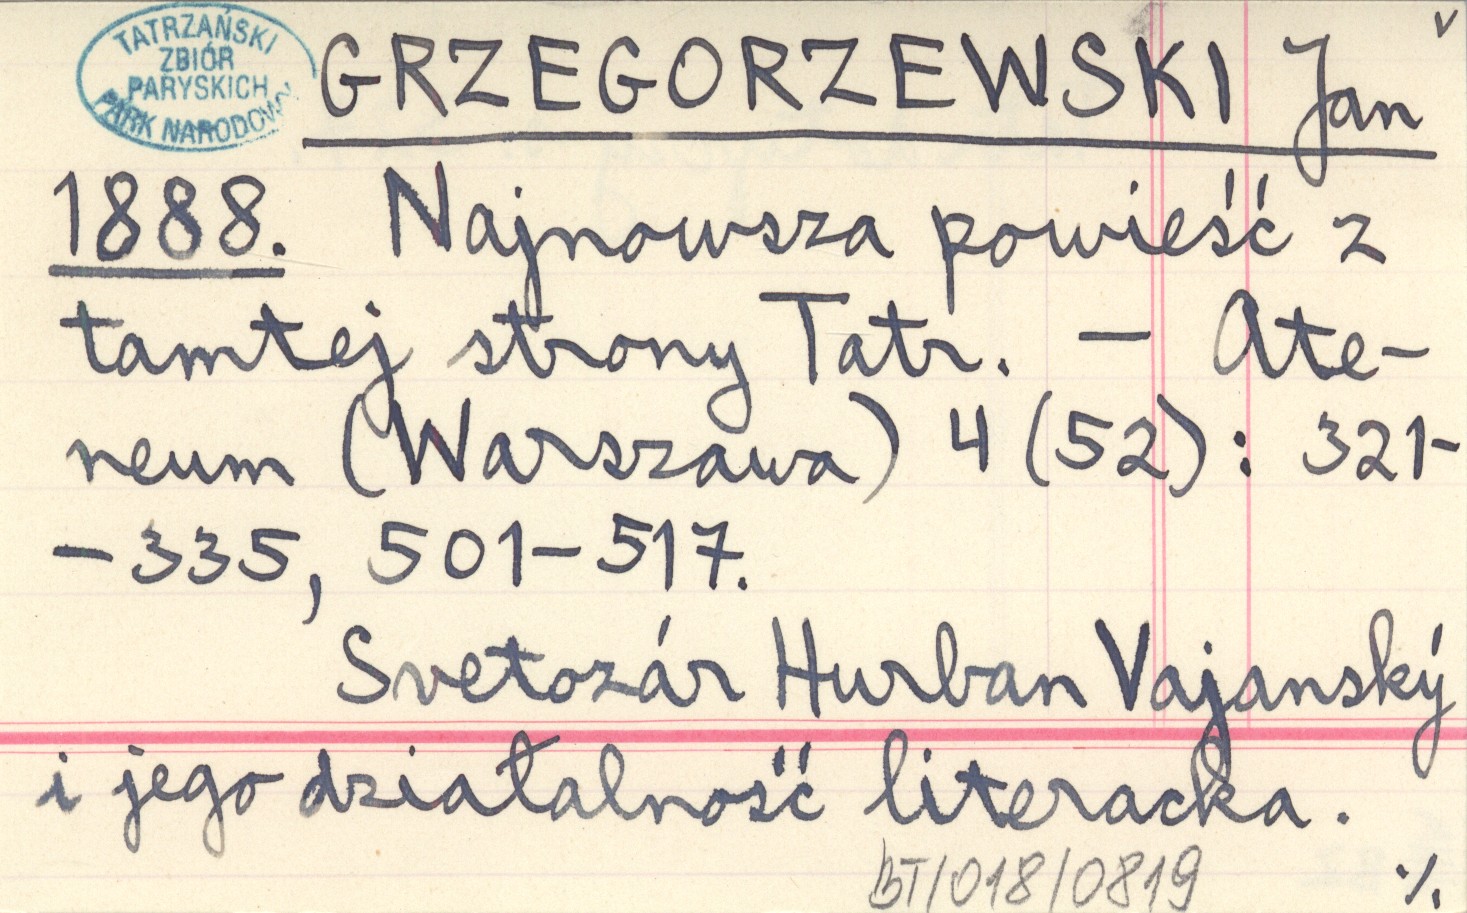 TATRZAŃSKI
ZBIÓR
PARYSKICH
PARK NARODOWY
GRZEGORZEWSKI Jan
v
1888. Najnowsza powieść z
tamtej strony Tatr. — Ate-
neum (Warszawa) 4 (52): 321-
-335, 501-517.
Svetozár Hurban Vajanský
i jego działalność literacka.
BT/018/0819
·/.